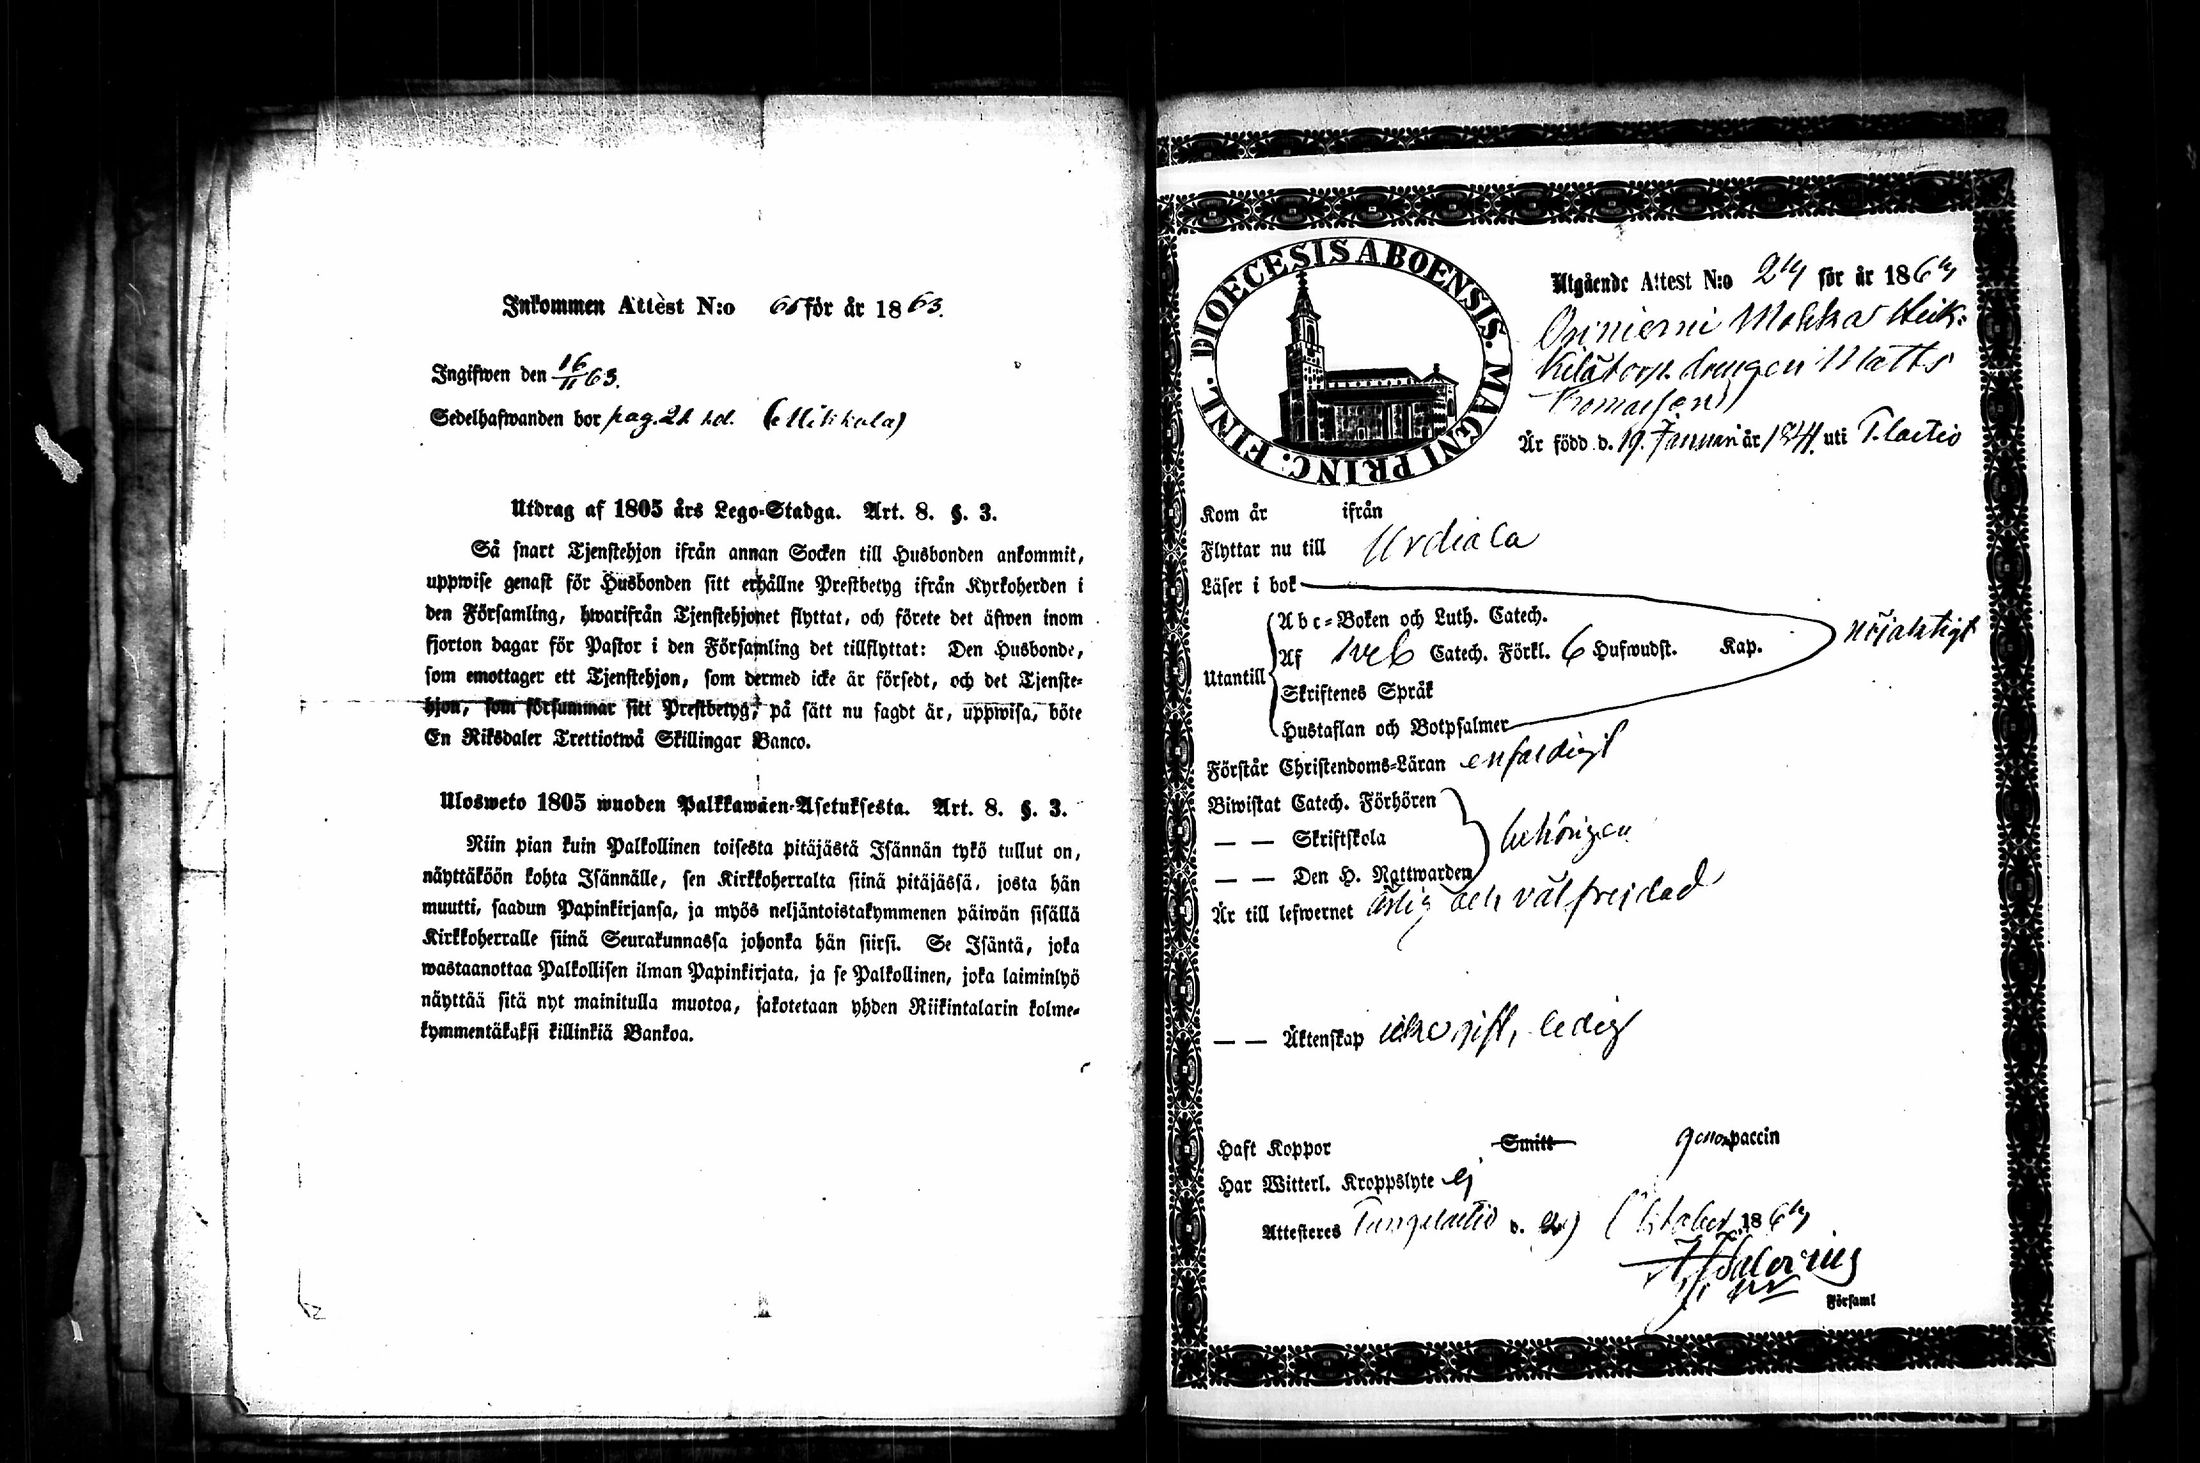 Inkommen Attest N:o 66 för år 1863.
Ingifwen den 16/11 63.
Sedelhafwanden bor pag. 21 (Mikkola)
Utdrag af 1805 års Lego-Stadga. Art. 8. §. 3.
Så snart Tjenstehjon ifrån annan Socken till Husbonden ankommit,
uppwise genast för Husbonden sitt erhållne Prestbetyg ifrån Kyrkoherden i
den Församling, hwarifrån Tjenstehjonet flyttat, och förete det äfwen inom
fjorton dagar för Pastor i den Församling det tillflyttat: Den Husbonde,
som emottager ett Tjenstehjon, som dermed icke är försedt, och det Tjenste-
hjon, som försummar sitt Prestbetyg, på sätt nu sagdt är, uppwisa, böte
En Riksdaler Trettiotwå Skillingar Banco.
Ulosweto 1805 wuoden Palkkawäen-Asetuksesta. Art. 8. §. 3.
Niin pian kuin Palkollinen toisesta pitäjästä Isännän tykö tullut on,
näyttäköön kohta Isännälle, sen Kirkkoherralta siinä pitäjässä, josta hän
muutti, saadun Papinkirjansa, ja myös neljäntoistakymmenen päiwän sisällä
Kirkkoherralle siinä Seurakunnassa johonka hän siirsi. Se Isäntä, joka
wastaanottaa Palkollisen ilman Papinkirjata, ja se Palkollinen, joka laiminlyö
näyttää sitä nyt mainitulla muotoa, sakotetaan yhden Riikintalarin kolme-
kymmentäkaksi killinkiä Bankoa.
DIOECESIS ABOENSIS. MAGNI PRINC. FINL.
Utgående Attest N:o för år 186
drängen Matts
Är född d. 19. Januari år 1841. uti T.laetio
Kom år ifrån
Flyttar nu till Urdiala
Läser i bok
Abc-Boken och Luth. Catech.
Utantill Af Catech. Förkl. 6 Hufwudst. Kap. nöjaktigt
Skriftenes Språk
Hustaflan och Botpsalmer
Förstår Christendoms-Läran enfaldigt
Biwistat Catech. Förhören
— — Skriftskola behörigen
— — Den H. Nattwarden
Är till lefwernet ärlig och välfrejdad
— — Äktenskap icke gift, ledig
Haft Koppor Smitt genom Vaccin
Har Witterl. Kroppslyte ej
Attesteres Tungelaetio d. Oktober 186
Församl